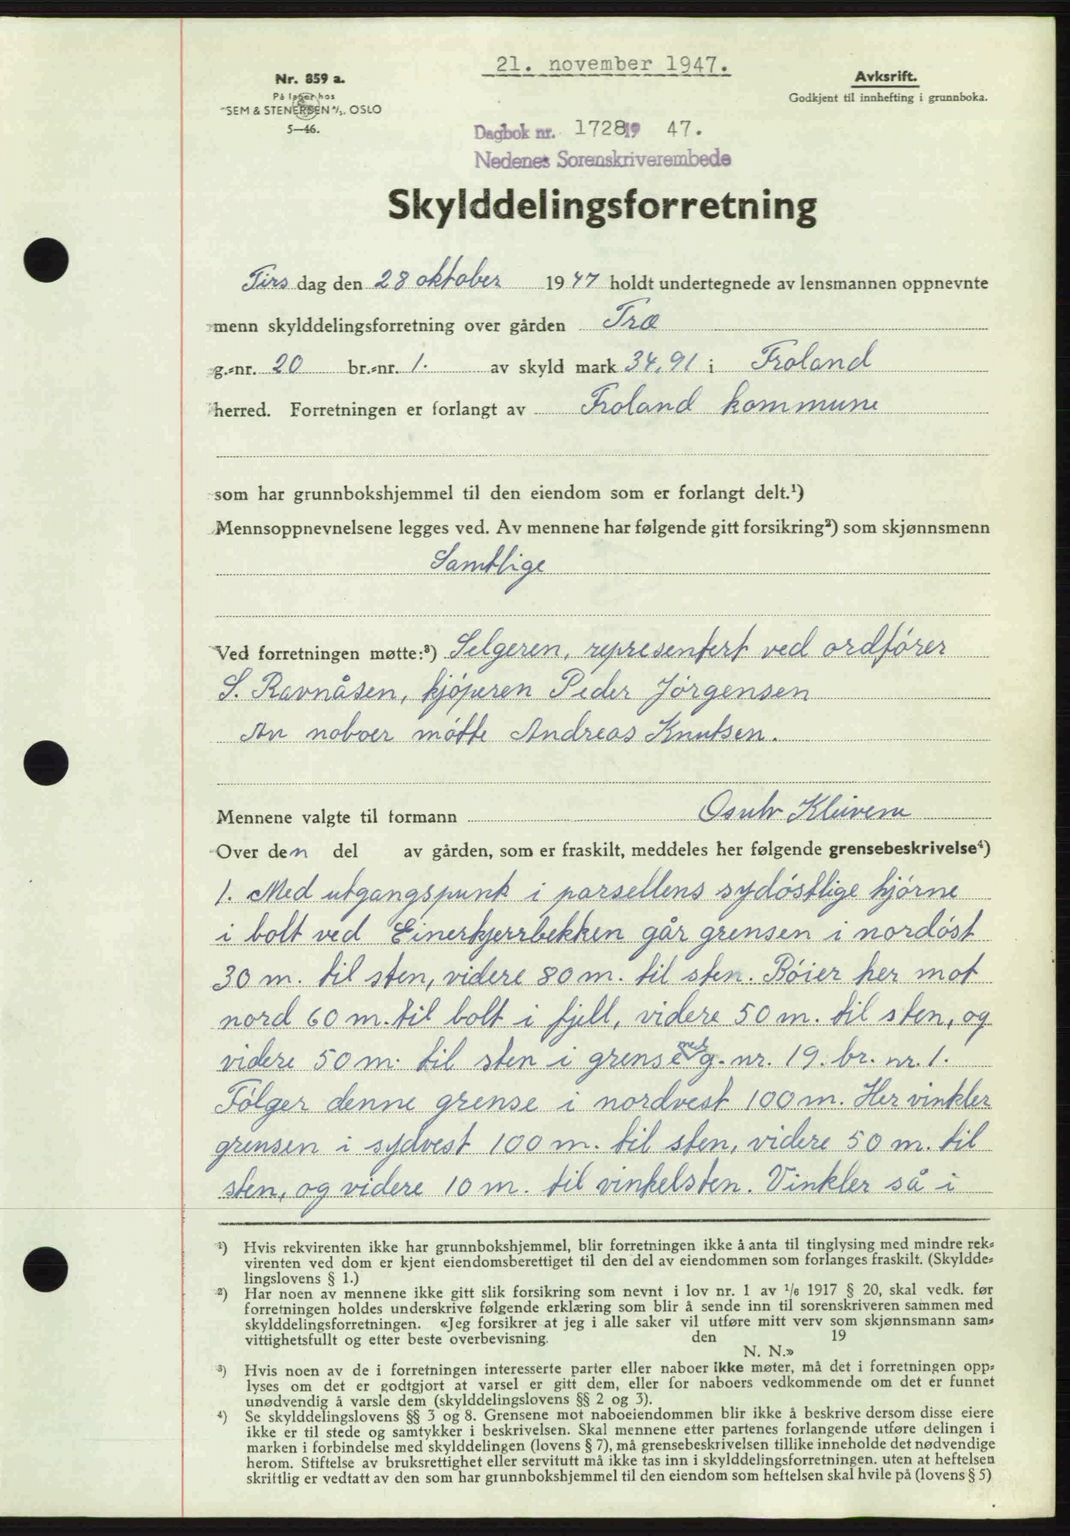 21. november 1947.
Nr. 859 a.
På lager hos
SEM & STENERSEN A/S. OSLO
5—46.
Avskrift.
Godkjent til innhefting i grunnboka.
Dagbok nr. 1728 19 47.
Nedenes Sorenskriverembede
Skylddelingsforretning
Tirsdag den 28 oktober 1947 holdt undertegnede av lensmannen oppnevnte
menn skylddelingsforretning over gården Træ
g.-nr. 20 br.-nr. 1. av skyld mark 34,91 i Froland
herred. Forretningen er forlangt av Froland kommune
som har grunnbokshjemmel til den eiendom som er forlangt delt.¹)
Mennsoppnevnelsene legges ved. Av mennene har følgende gitt forsikring²) som skjønnsmenn
Samtlige
Ved forretningen møtte:³) Selgeren, representert ved ordfører
S. Ravnåsen, kjøperen Peder Jørgensen
Av naboer møtte Andreas Knutsen.
Mennene valgte til formann Osulv Kleivene
Over den del av gården, som er fraskilt, meddeles her følgende grensebeskrivelse⁴)
1. Med utgangspunk i parsellens sydøstlige hjørne
i bolt ved Einerkjerrbekken går grensen i nordøst
30 m. til sten, videre 80 m. til sten. Bøier her mot
nord 60 m. til bolt i fjell, videre 50 m. til sten, og
videre 50 m. til sten i grense med g. nr. 19. br. nr. 1.
Følger denne grense i nordvest 100 m. Her vinkler
grensen i sydvest 100 m. til sten, videre 50 m. til
sten, og videre 10 m. til vinkelsten. Vinkler så i
¹) Hvis rekvirenten ikke har grunnbokshjemmel, blir forretningen ikke å anta til tinglysing med mindre rek-
virenten ved dom er kjent eiendomsberettiget til den del av eiendommen som forlanges fraskilt. (Skyldde-
lingslovens § 1.)
²) Har noen av mennene ikke gitt slik forsikring som nevnt i lov nr. 1 av 1/6 1917 § 20, skal vedk. før
forretningen holdes underskrive følgende erklæring som blir å sende inn til sorenskriveren sammen med
skylddelingsforretningen. «Jeg forsikrer at jeg i alle saker vil utføre mitt verv som skjønnsmann sam-
vittighetsfullt og etter beste overbevisning. den 19
N. N.»
³) Hvis noen av de i forretningen interesserte parter eller naboer ikke møter, må det i forretningen opp-
lyses om det er godtgjort at varsel er gitt dem, eller for naboers vedkommende om det er funnet
unødvendig å varsle dem (skylddelingslovens §§ 2 og 3).
⁴) Se skylddelingslovens §§ 3 og 8. Grensene mot naboeiendommen blir ikke å beskrive dersom disse eiere
ikke er til stede og samtykker i beskrivelsen. Skal mennene etter partenes forlangende utføre delingen i
marken i forbindelse med skylddelingen (lovens § 7), må grensebeskrivelsen tillike inneholde det nødvendige
herom. Stiftelse av bruksrettighet eller servitutt må ikke tas inn i skylddelingsforretningen. uten at heftelsen
skriftlig er vedtatt av den som har grunnbokshjemmel til den eiendom som heftelsen skal hvile på (lovens § 5)